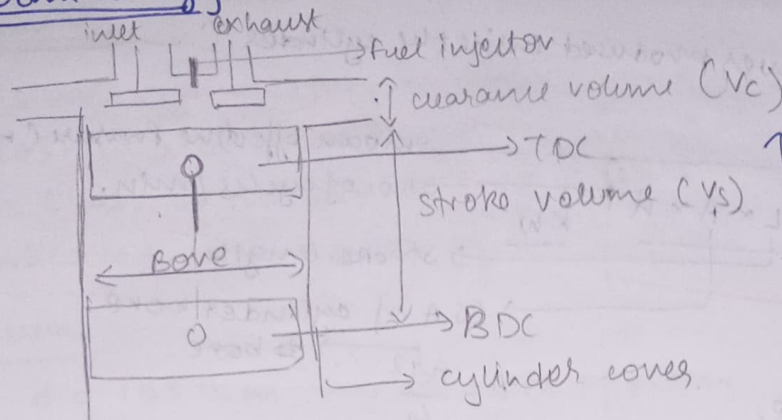 inlet exhaust
fuel injector
clearance volume (Vc)
TDC
stroke volume (Vs)
Bore
BDC
cylinder cover